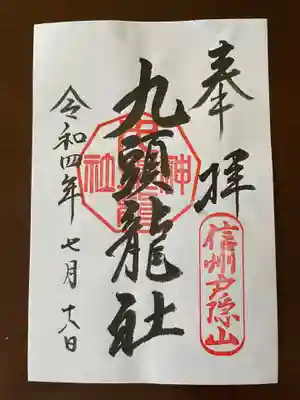 奉拝
信州戸隠山
九頭龍社
令和四年七月十八日